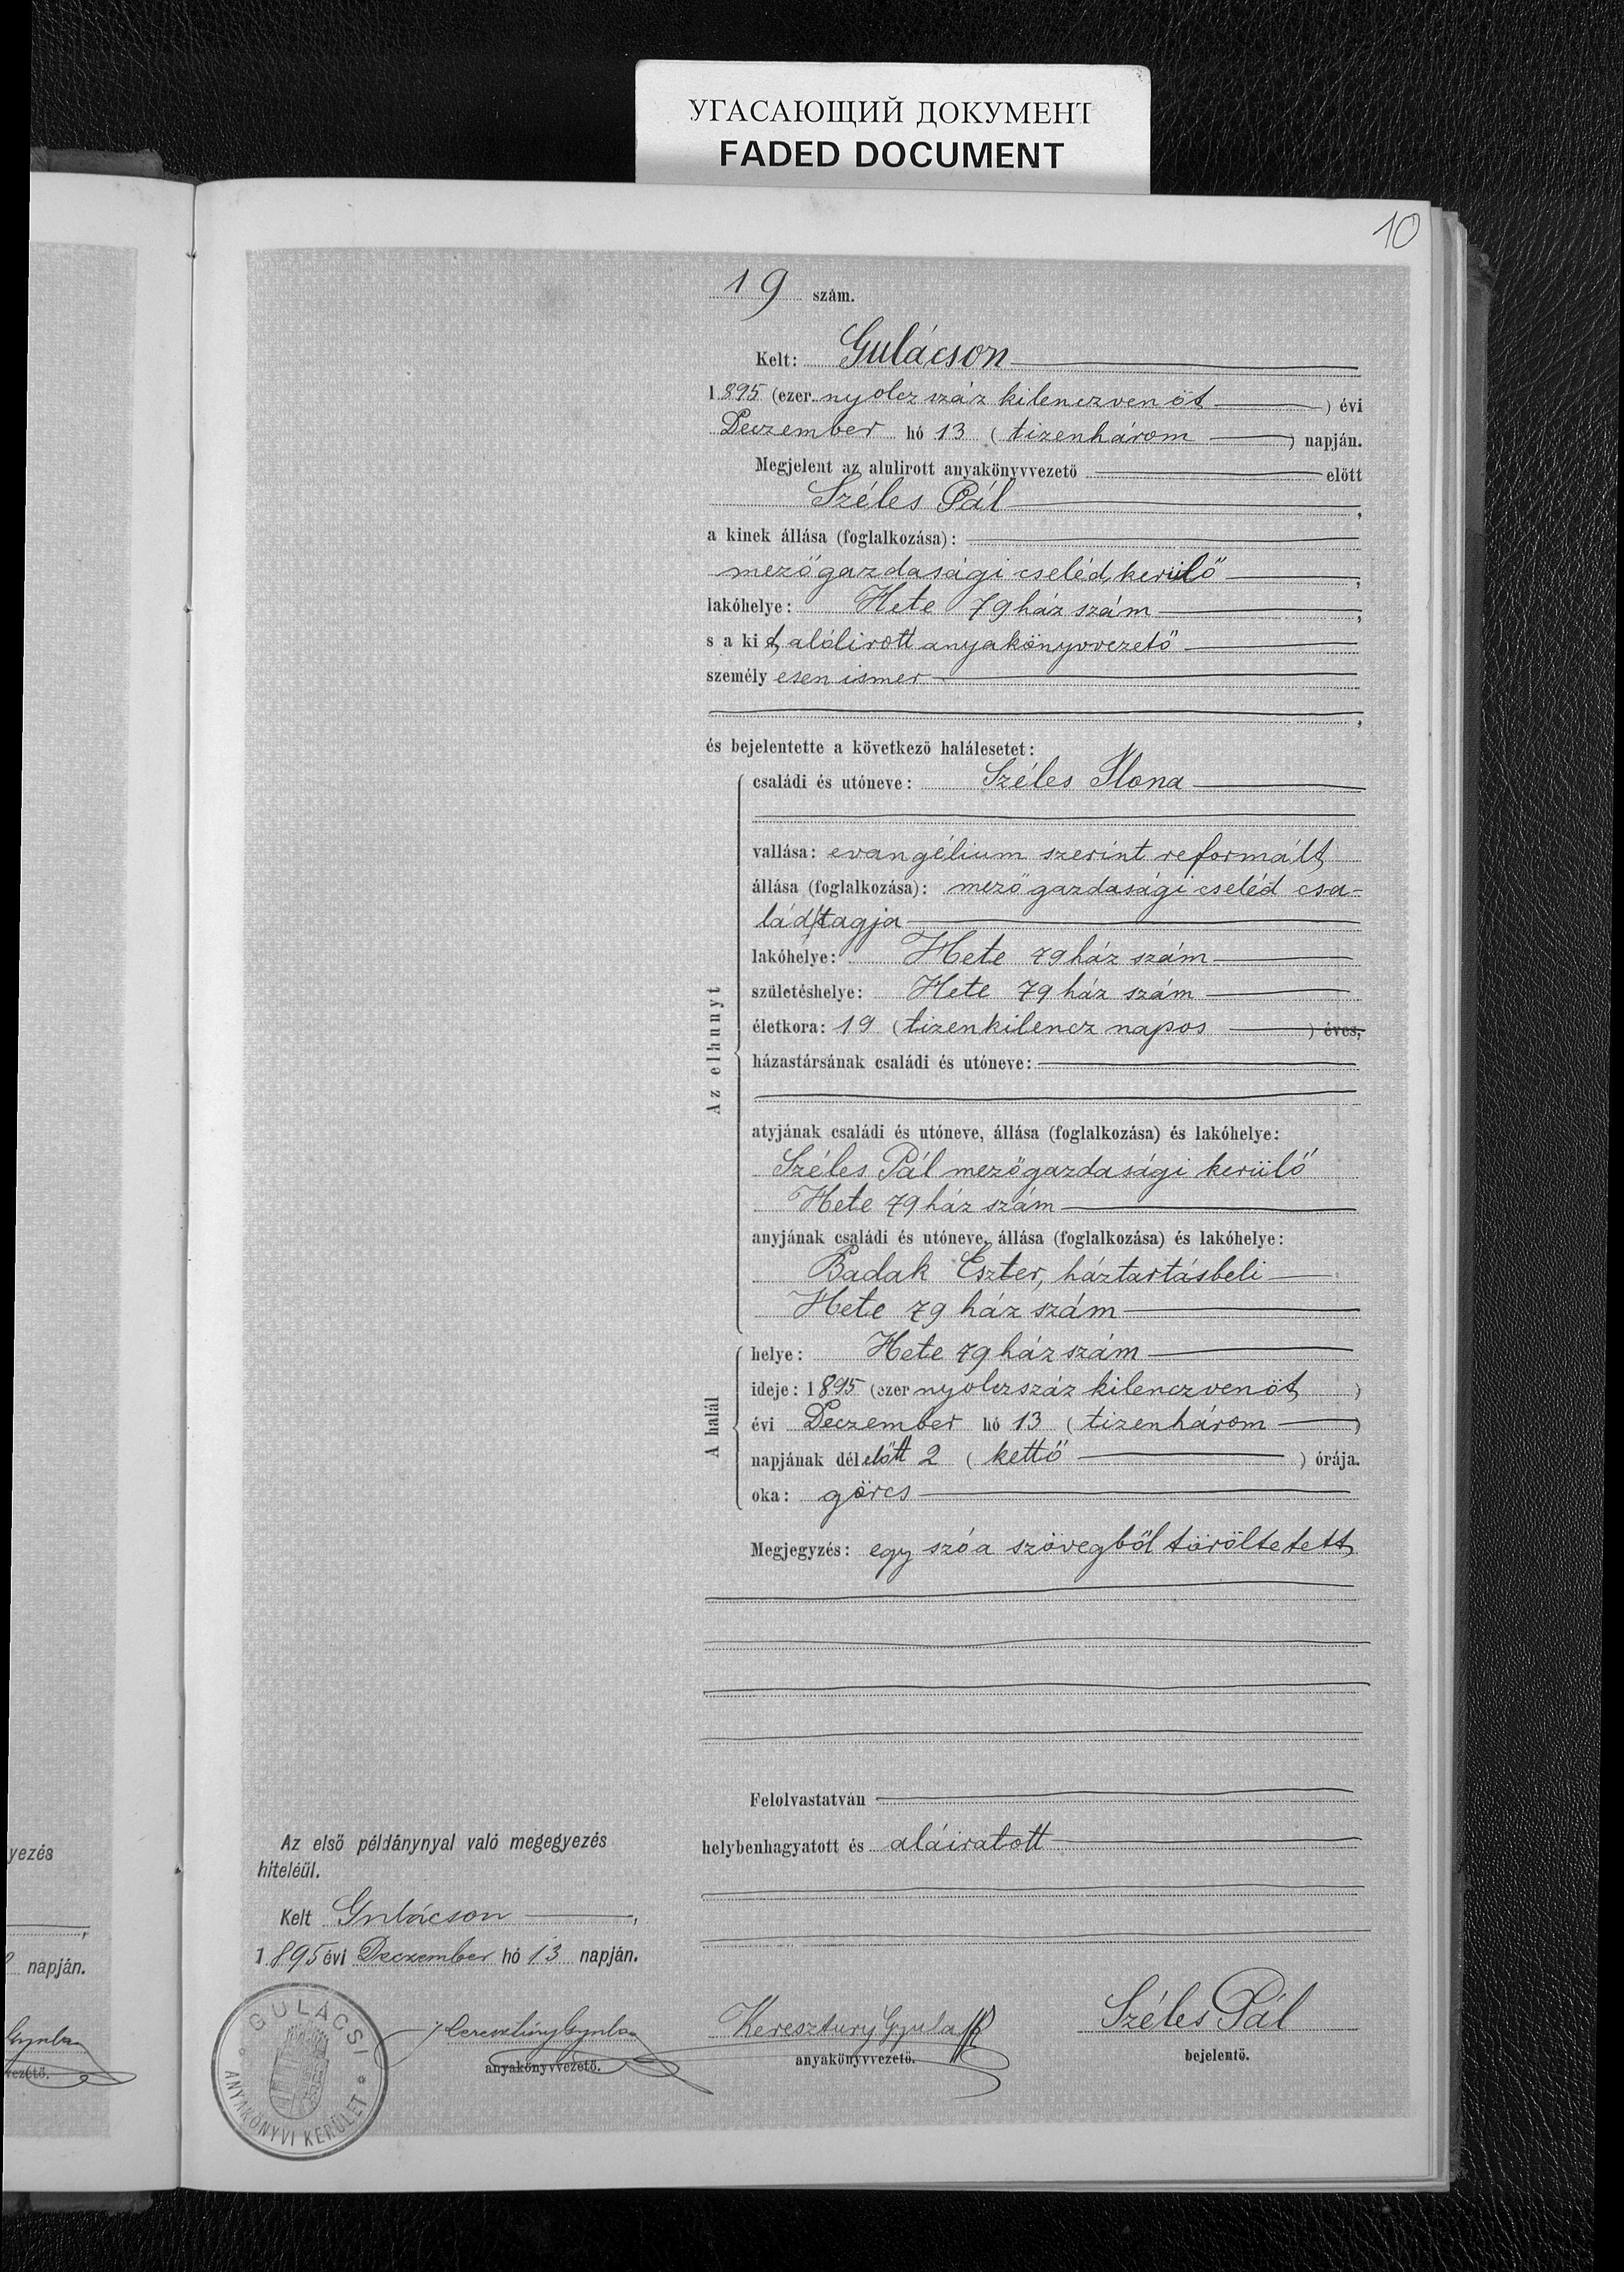 УГАСАЮЩИЙ ДОКУМЕНТ
FADED DOCUMENT
10
19 szám.
Kelt: Gulácson
1895 (ezer nyolcz száz kilenczven öt) évi
Deczember hó 13 (tizenhárom) napján.
Megjelent az alulirott anyakönyvvezető előtt
Széles Pál,
a kinek állása (foglalkozása):
mezőgazdasági cseléd, kerülő,
lakóhelye: Hete 79 ház szám,
s a kit, alólirott anyakönyvvezető
személyesen ismer
,
és bejelentette a következő halálesetet:
Az elhunyt
családi és utóneve: Széles Ilona
vallása: evangélium szerint reformált
állása (foglalkozása): mezőgazdasági cseléd csa-
lád/tagja
lakóhelye: Hete 79 ház szám
születéshelye: Hete 79 ház szám
életkora: 19 (tizenkilencz napos) éves,
házastársának családi és utóneve:
atyjának családi és utóneve, állása (foglalkozása) és lakóhelye:
Széles Pál mezőgazdasági kerülő
Hete 79 ház szám
anyjának családi és utóneve, állása (foglalkozása) és lakóhelye:
Badak Eszter, háztartásbeli
Hete 79 ház szám
A halál
helye: Hete 79 ház szám
ideje: 1895 (ezer nyolczszáz kilenczven öt)
évi Deczember hó 13 (tizenhárom)
napjának délelőtt 2 (kettő) órája.
oka: görcs
Megjegyzés: egy szó a szövegből töröltetett
Felolvastatván
helybenhagyatott és aláiratott
Az első példánynyal való megegyezés
hiteléül.
Kelt Gulácson,
1895 évi Deczember hó 13 napján.
Keresztury Gyula
anyakönyvvezető.
Keresztury Gyula
anyakönyvvezető.
Széles Pál
bejelentő.
GULÁCSI
ANYAKÖNYVI KERÜLET
yezés
,
napján.
Gyula
vezető.